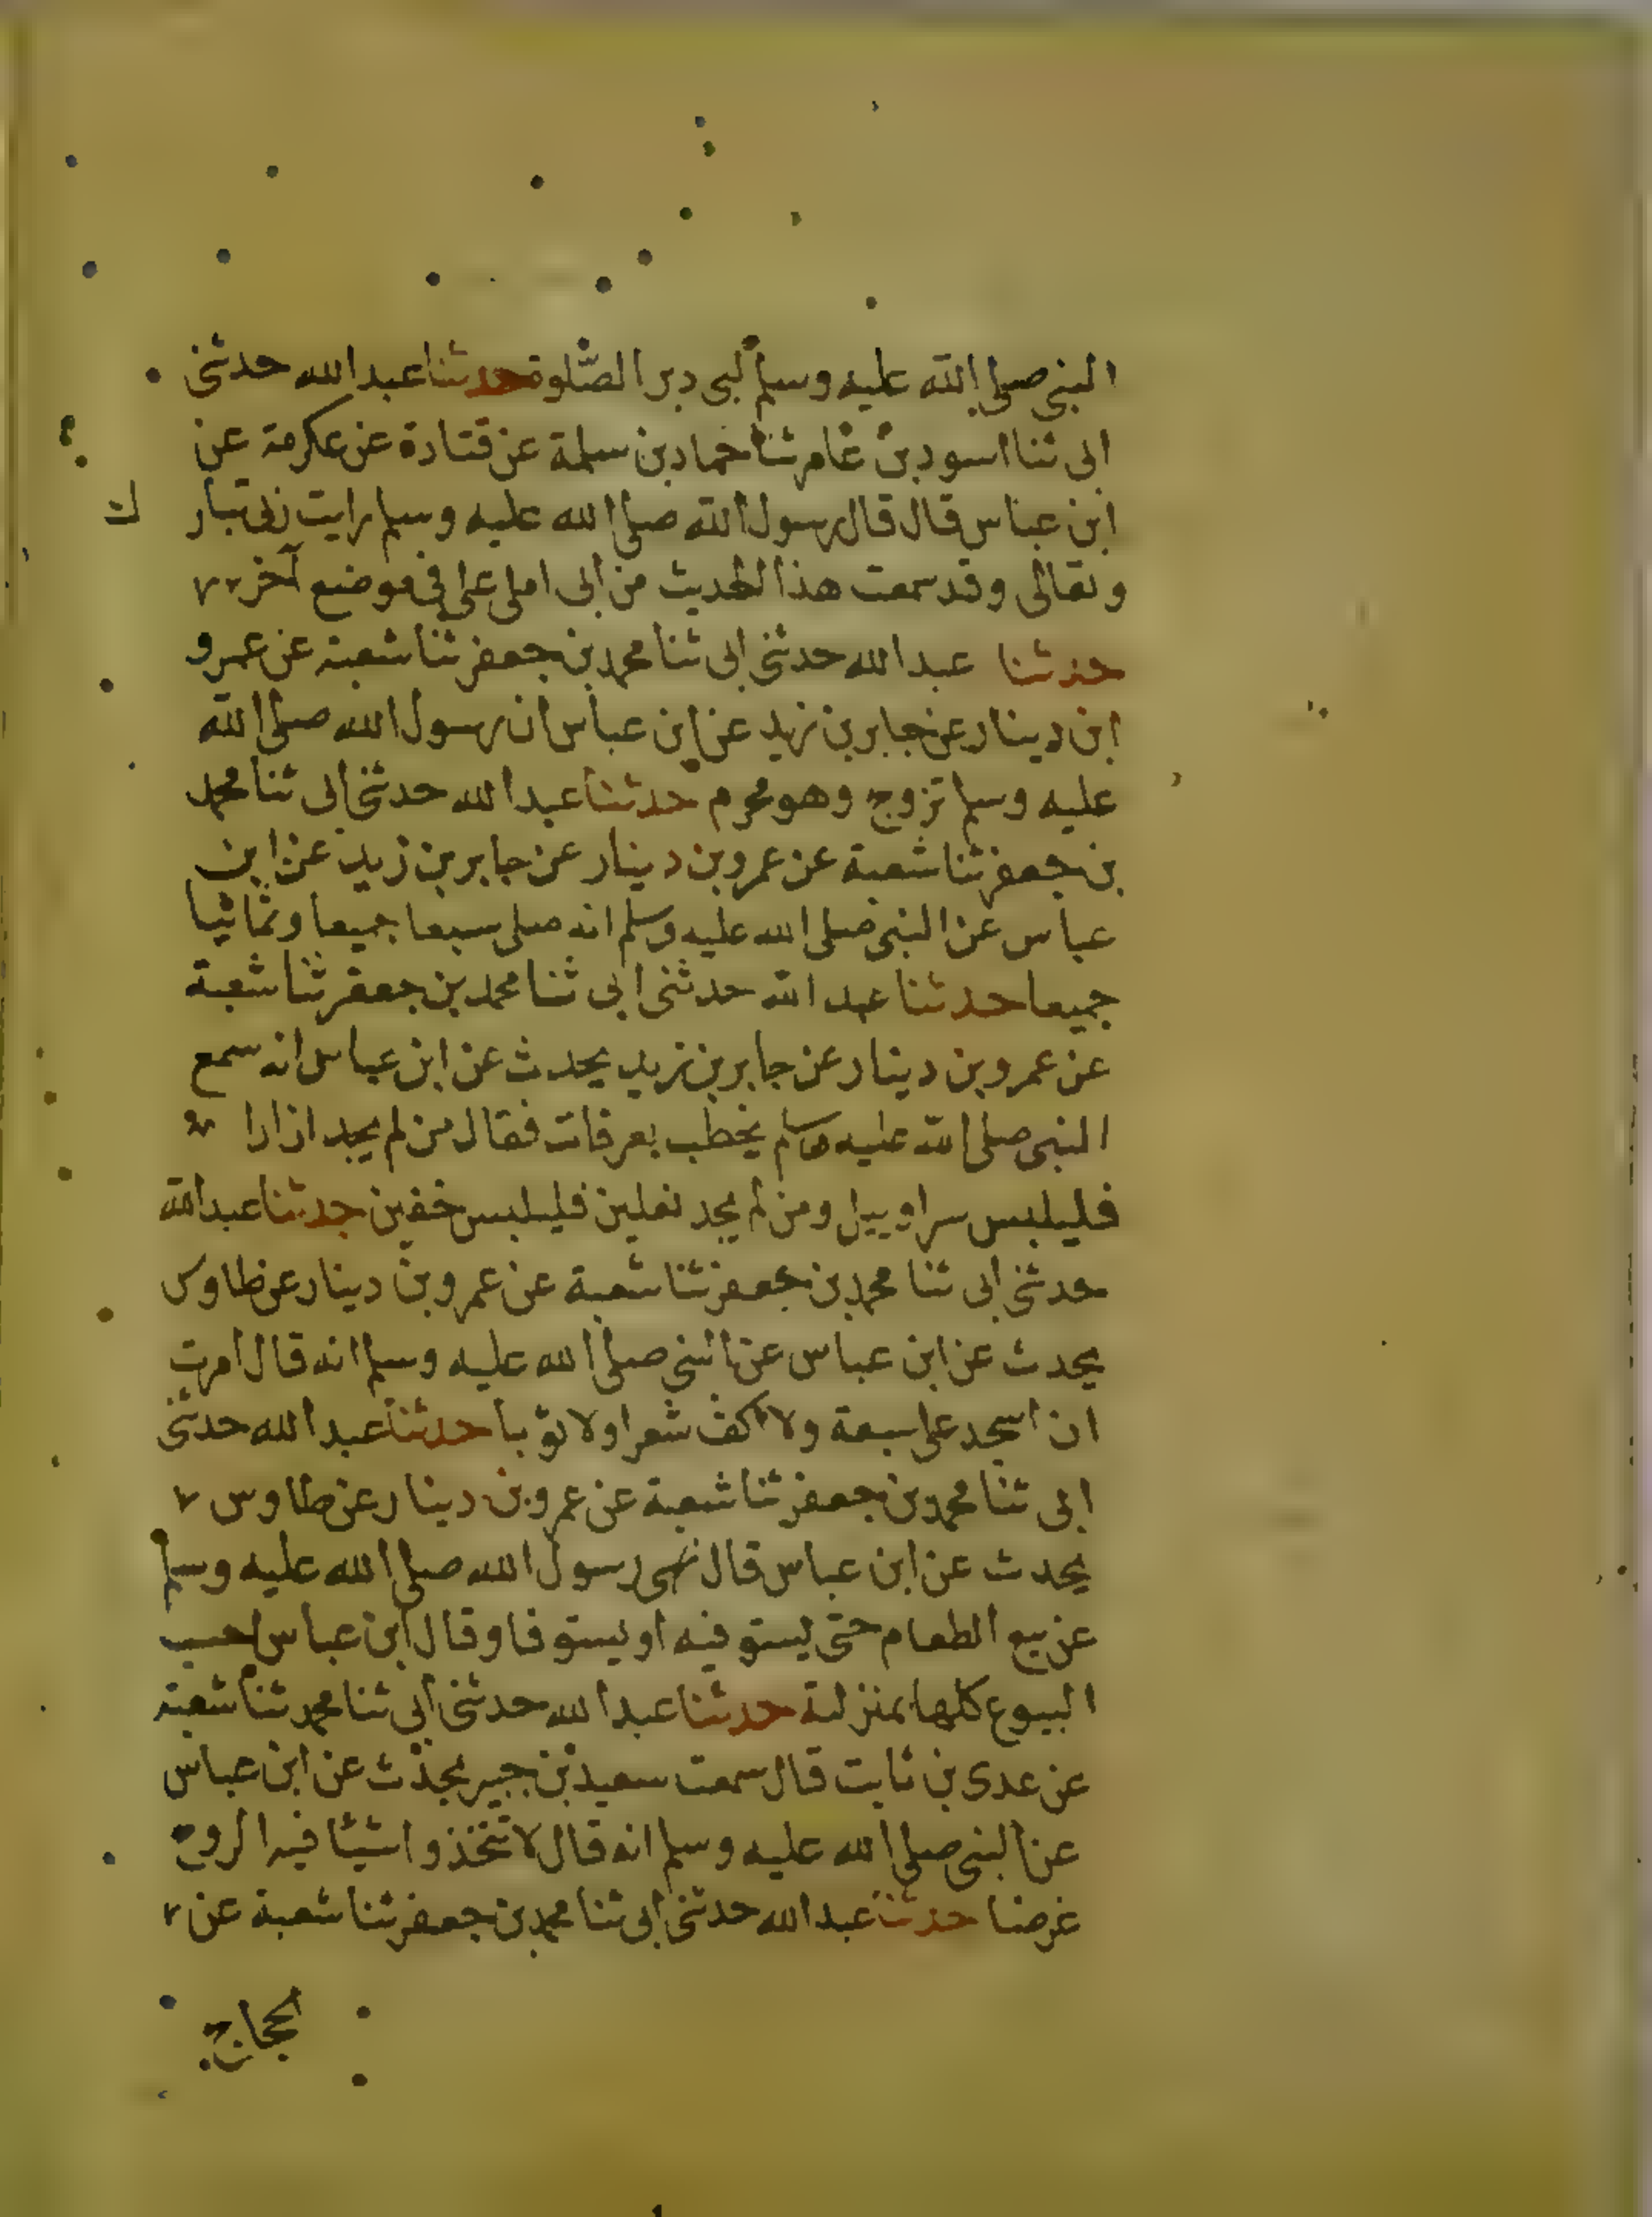 النبي صلى الله عليه وسلم لبى دبر الصلوة حدثنا عبد الله حدثني
ابي ثنا اسود بن عامر ثنا حماد بن سلمة عن قتادة عن عكرمة عن
ابن عباس قال قال رسول الله صلى الله عليه وسلم رايت ربي تبار
ك
وتعالى وقد سمعت هذا الحديث من ابي املى علي في موضع آخر
حدثنا عبد الله حدثني ابي ثنا محمد بن جعفر ثنا شعبة عن عمرو
ابن دينار عن جابر بن زيد عن ابن عباس ان رسول الله صلى الله
عليه وسلم تزوج وهو محرم حدثنا عبد الله حدثني ابي ثنا محمد
بن جعفر ثنا شعبة عن عمرو بن دينار عن جابر بن زيد عن ابن
عباس عن النبي صلى الله عليه وسلم انه صلى سبعا جميعا وثمانيا
جميعا حدثنا عبد الله حدثني ابي ثنا محمد بن جعفر ثنا شعبة
عن عمرو بن دينار عن جابر بن زيد يحدث عن ابن عباس انه سمع
النبي صلى الله عليه وسلم يخطب بعرفات فقال من لم يجد ازارا
فليلبس سراويل ومن لم يجد نعلين فليلبس خفين حدثنا عبد الله
حدثني ابي ثنا محمد بن جعفر ثنا شعبة عن عمرو بن دينار عن طاوس
يحدث عن ابن عباس عن النبي صلى الله عليه وسلم انه قال امرت
ان اسجد على سبعة ولا اكف شعرا ولا ثوبا حدثنا عبد الله حدثني
ابي ثنا محمد بن جعفر ثنا شعبة عن عمرو بن دينار عن طاوس
يحدث عن ابن عباس قال نهى رسول الله صلى الله عليه وسلم
عن بيع الطعام حتى يستوفيه او يستوفا وقال ابن عباس احسب
البيوع كلها بمنزلة حدثنا عبد الله حدثني ابي ثنا محمد ثنا شعبة
عن عدى بن ثابت قال سمعت سعيد بن جبير يحدث عن ابن عباس
عن النبي صلى الله عليه وسلم انه قال لا تتخذوا شيئا فيه الروح
غرضا حدثنا عبد الله حدثني ابي ثنا محمد بن جعفر ثنا شعبة عن
الحجاج